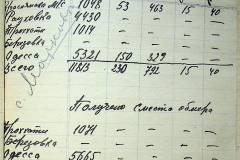 1048 53 463 15 40
Рауховка 4430 – – – –
Трихаты 1014 – – – –
Березовка – – – – –
Одесса 5321 150 329 – –
Всего 11813 290 792 15 40
Получено с места обмера
Трихаты 1071 – – –
Березовка – – – –
Одесса 5665 – – –